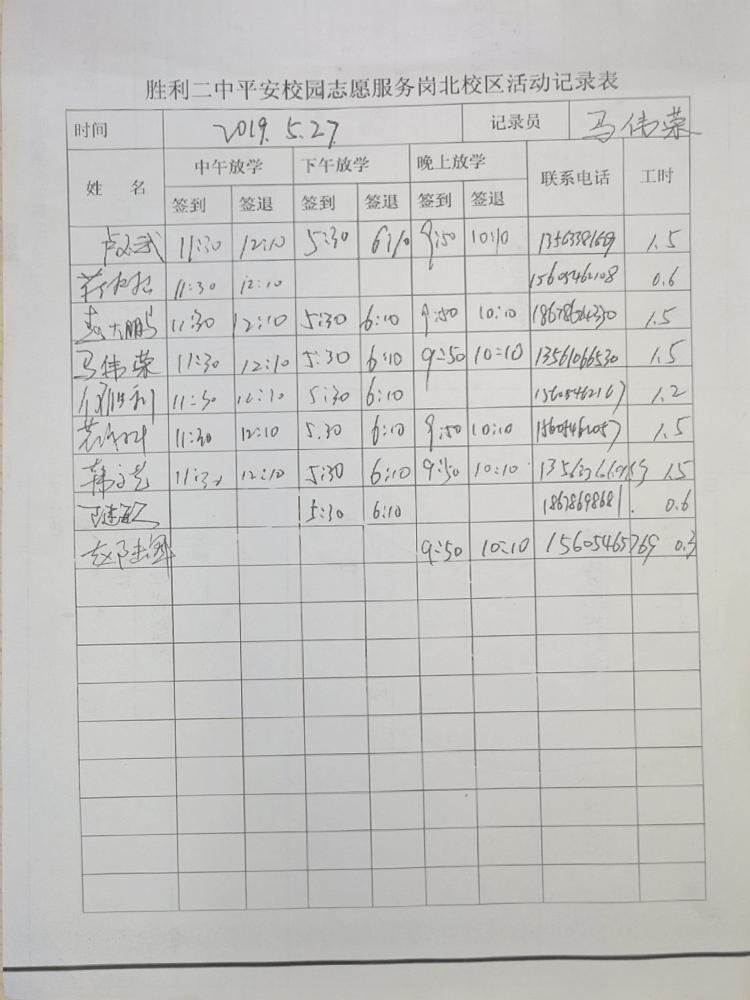 胜利二中平安校园志愿服务岗北校区活动记录表
时间 2019.5.27 记录员 马伟荣
姓 名 中午放学 下午放学 晚上放学 联系电话 工时
签到 签退 签到 签退 签到 签退
11:30 12:10 5:30 6:10 9:50 10:10 1.5
11:30 12:10 15605462108 0.6
11:30 12:10 5:30 6:10 9:50 10:10 1.5
马伟荣 11:30 12:10 5:30 6:10 9:50 10:10 13561066530 1.5
11:30 12:10 5:30 6:10 15605462167 1.2
11:30 12:10 5.30 6:10 9:50 10:10 15605462057 1.5
韩文芝 11:30 12:10 5:30 6:10 9:50 10:10 1.5
5:30 6:10 0.6
9:50 10:10 15605465769 0.3